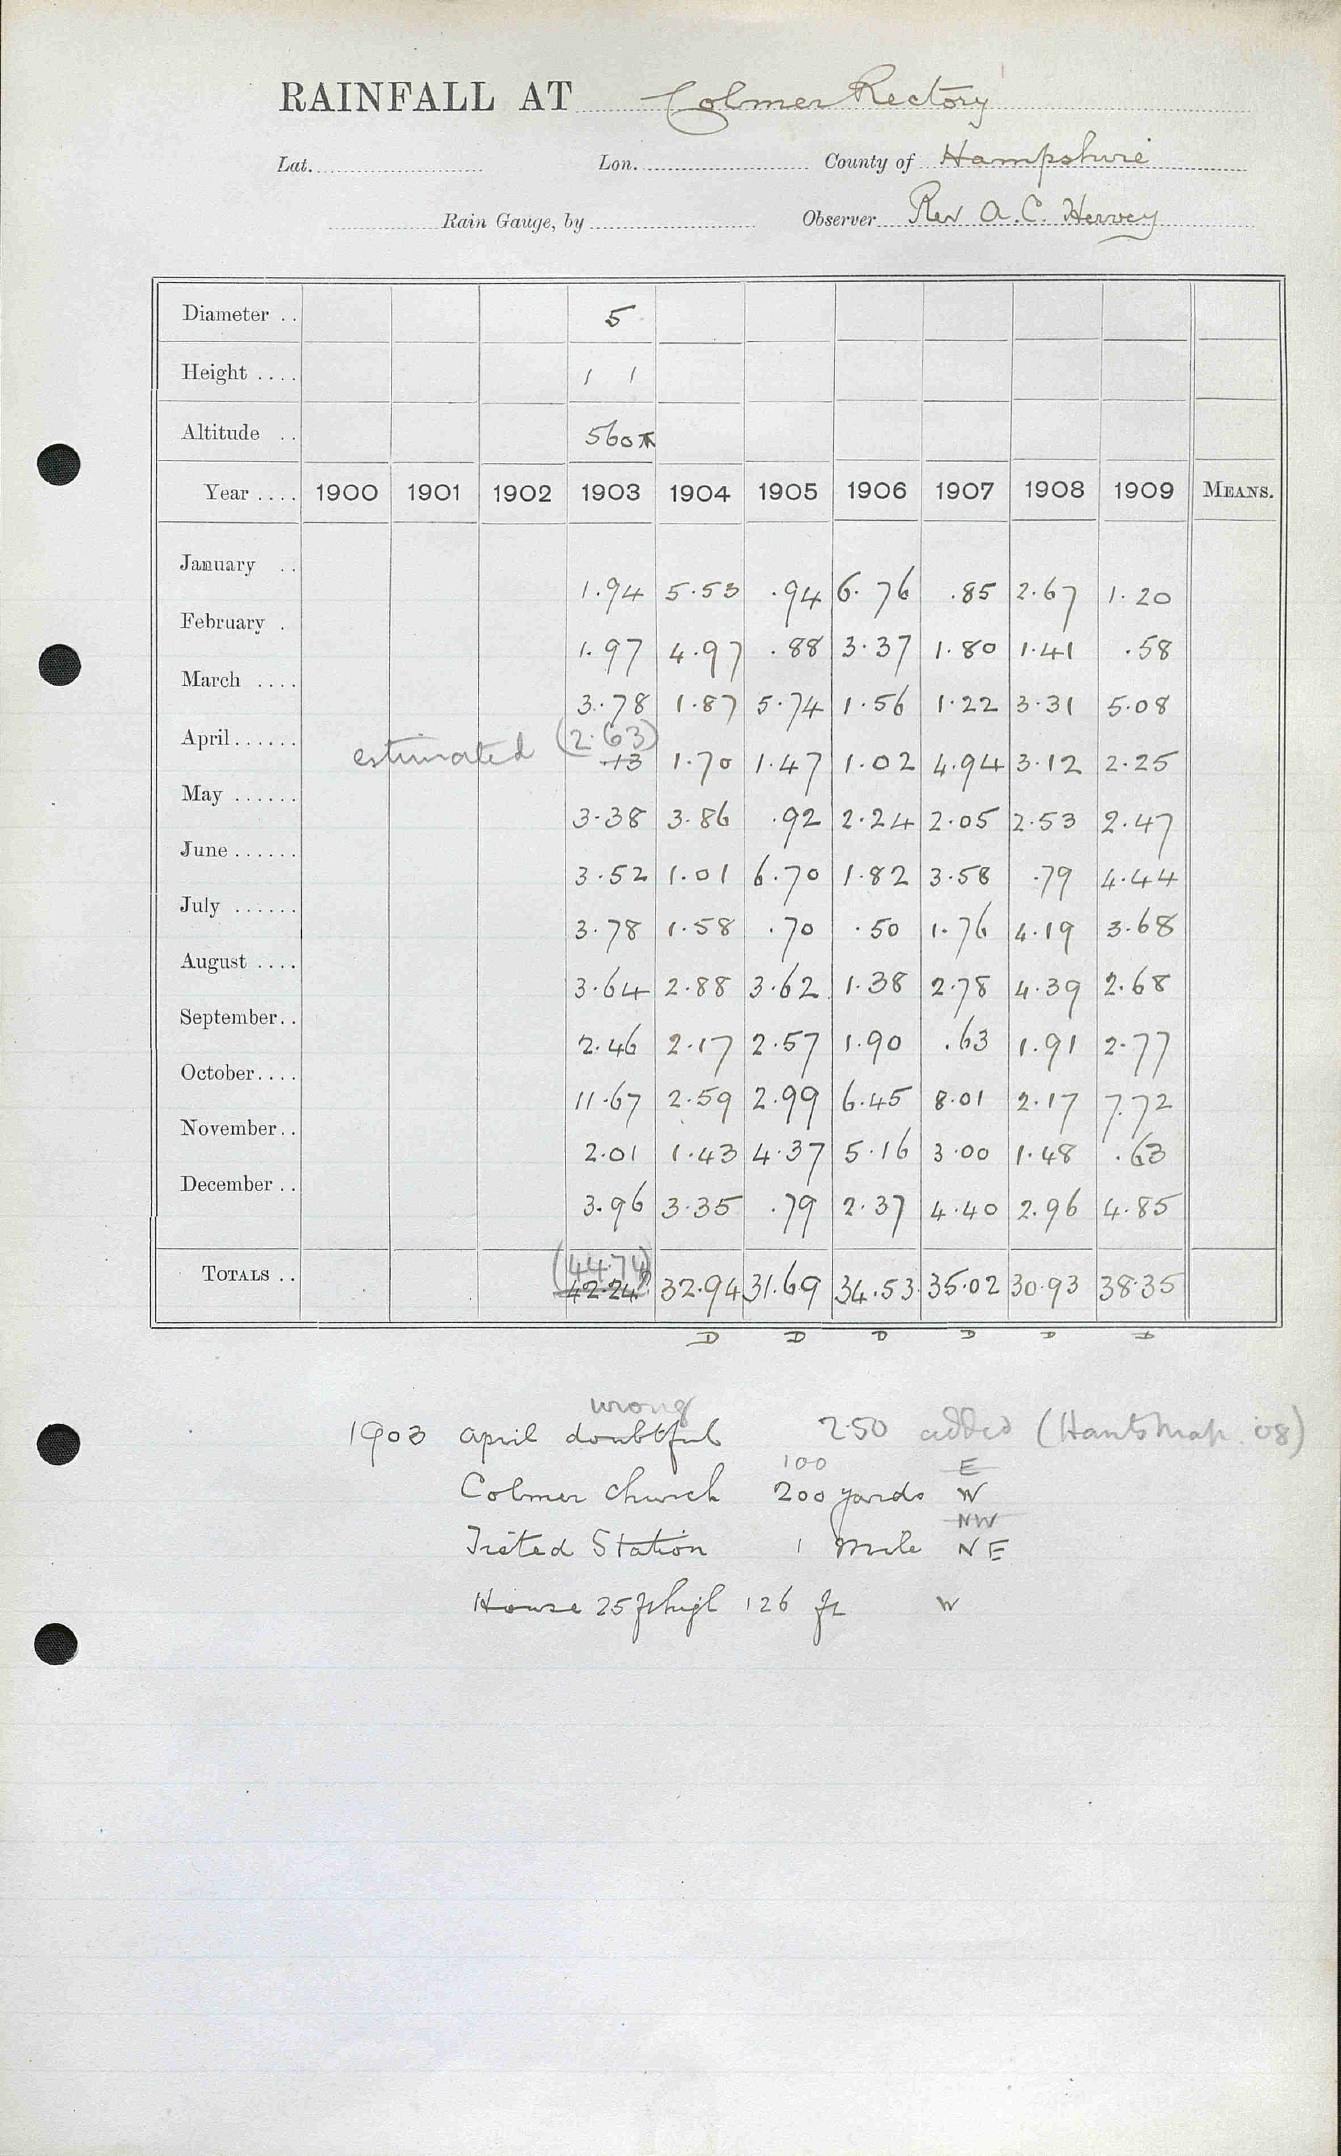 RAINFALL AT Colmer Rectory
Lat. Lon. County of Hampshire
Rain Gauge, by Observer Rev A. C. Hervey
Diameter .. 5
Height .... 1 1
Altitude .. 560
Year .... 1900 1901 1902 1903 1904 1905 1906 1907 1908 1909 MEANS.
January .. 1.94 5.53 .94 6.76 .85 2.67 1.20
February . 1.97 4.97 .88 3.37 1.80 1.41 .58
March .... 3.78 1.87 5.74 1.56 1.22 3.31 5.08
(2.63)
April...... estimated .13 1.70 1.47 1.02 4.94 3.12 2.25
May ...... 3.38 3.86 .92 2.24 2.05 2.53 2.47
June ...... 3.52 1.01 6.70 1.82 3.58 .79 4.44
July ...... 3.78 1.58 .70 .50 1.76 4.19 3.68
August .... 3.64 2.88 3.62 1.38 2.78 4.39 2.68
September.. 2.46 2.17 2.57 1.90 .63 1.91 2.77
October.... 11.67 2.59 2.99 6.45 8.01 2.17 7.72
November.. 2.01 1.43 4.37 5.16 3.00 1.48 .63
December .. 3.96 3.35 .79 2.37 4.40 2.96 4.85
(44.74)
TOTALS .. 42.24? 32.94 31.69 34.53 35.02 30.93 38.35
D D D D D D
wrong
1903 april doubtful 2.50 added (Hants Map '08)
100 E
Colmer church 200 yards W
NW
Tisted Station 1 Mile NE
House 25 ft high 126 ft W